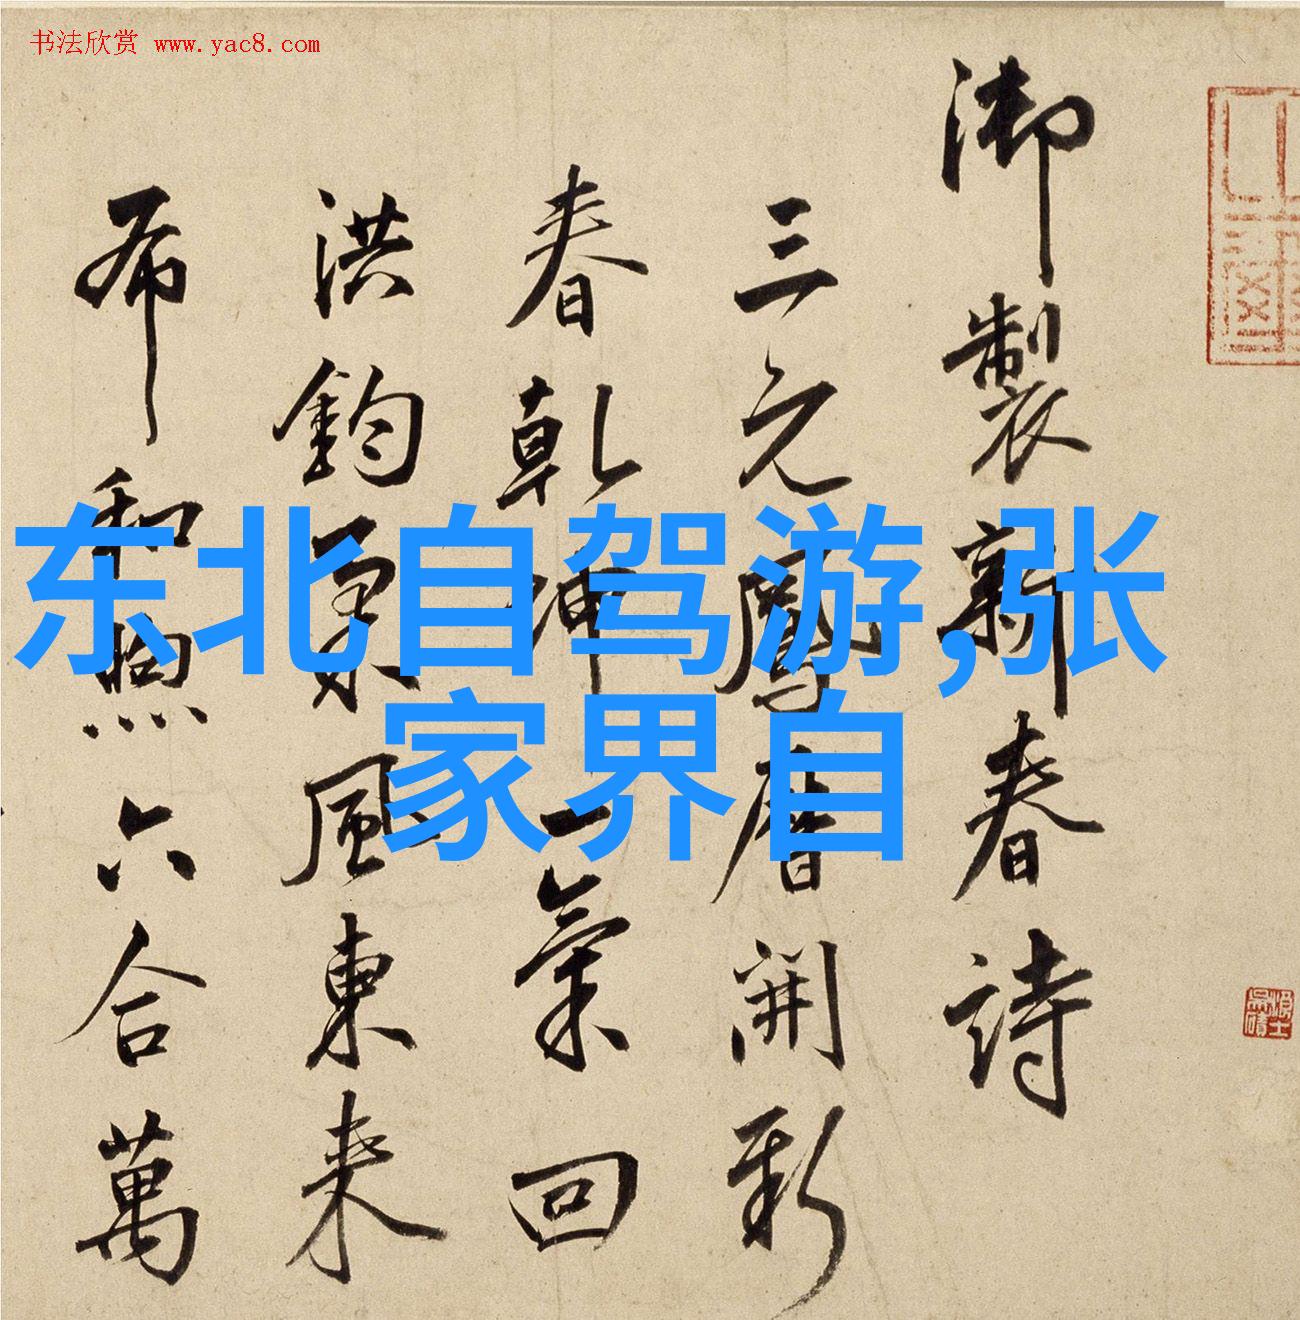 书法欣赏 www.yac8.com
御製新春詩
三元鳳曆開新
春乾坤一氣回
洪鈞
風東來
布和煦六合萬
东北自驾游,张
家界自